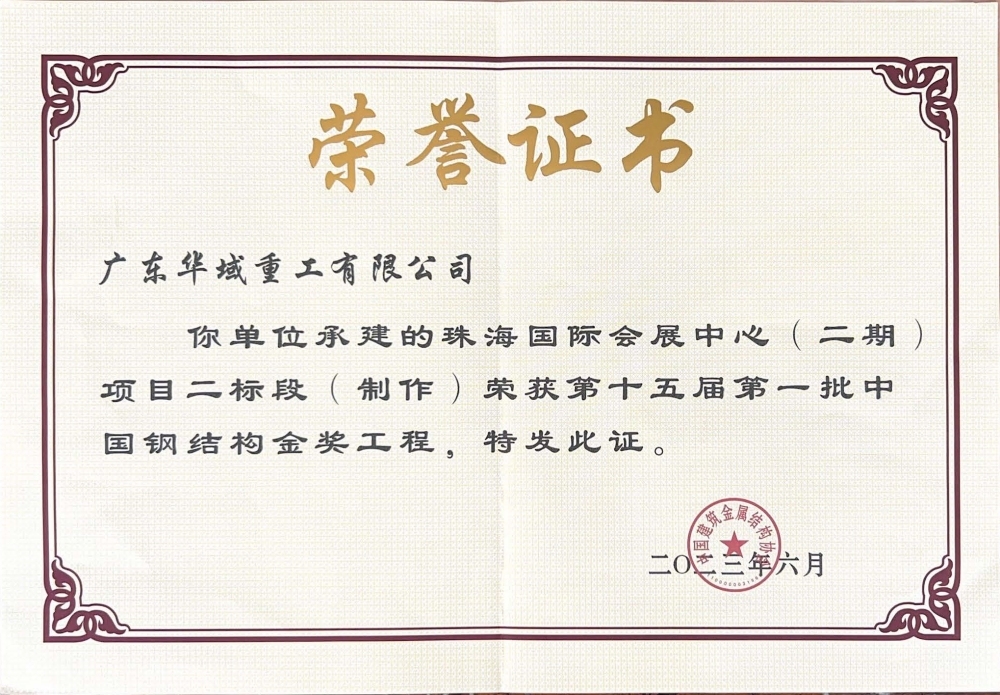 荣誉证书
广东华域重工有限公司
你单位承建的珠海国际会展中心（二期）
项目二标段（制作）荣获第十五届第一批中
国钢结构金奖工程，特发此证。
中国建筑金属结构协会
二〇二三年六月